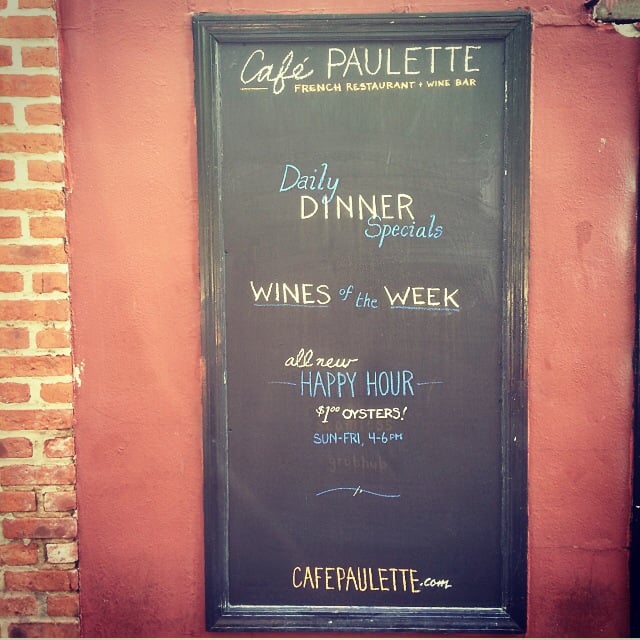 Café PAULETTE
FRENCH RESTAURANT + WINE BAR
Daily
DINNER
Specials
WINES of the WEEK
all new
HAPPY HOUR
$1.00 OYSTERS!
SUN-FRI, 4-6PM
grubhub
CAFEPAULETTE.com